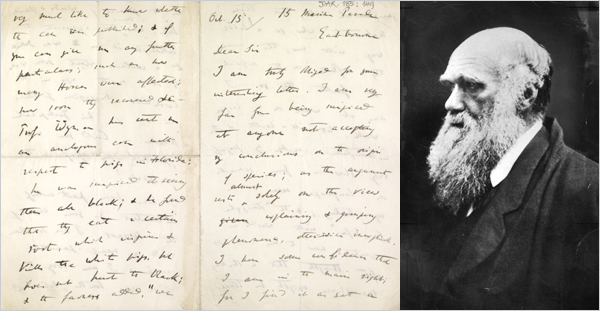 very much like to know whether
the case was published; & if
you can give me any further
particulars; such as how
many Horses were affected;
how soon they recovered &c
Prof. Wyman has sent me
an analogous case with
respect to pigs in Florida:
he was surprised at seeing
them all black; & he found
that they eat a certain
root, which injures &
kills the white pigs, but
does not hurt the black;
& the farmers added, "we
DAR 185:
Oct. 15 15 Marine Parade
Eastbourne
Dear Sir
I am truly obliged for your
interesting letter. I am very
far from being surprised
at anyone not accepting
my conclusions on the origin
of species; as the argument
almost
rests solely on the view
given explaining & grouping
phenomena, otherwise inexplic.
I have confidence that
I am in the main right;
for I find it as yet a